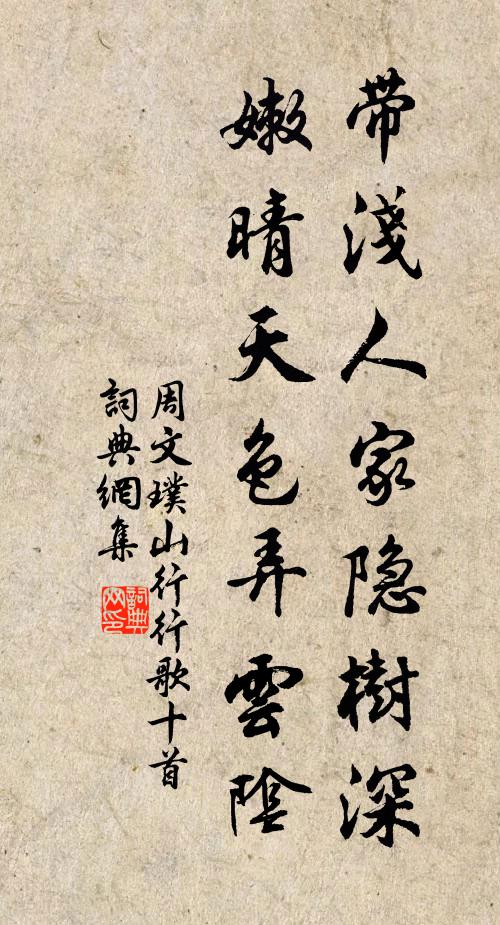 带淺人家隐樹深
嫩晴天色弄雲陰
周文璞山行行歌十首
詞典網集
詞典网印